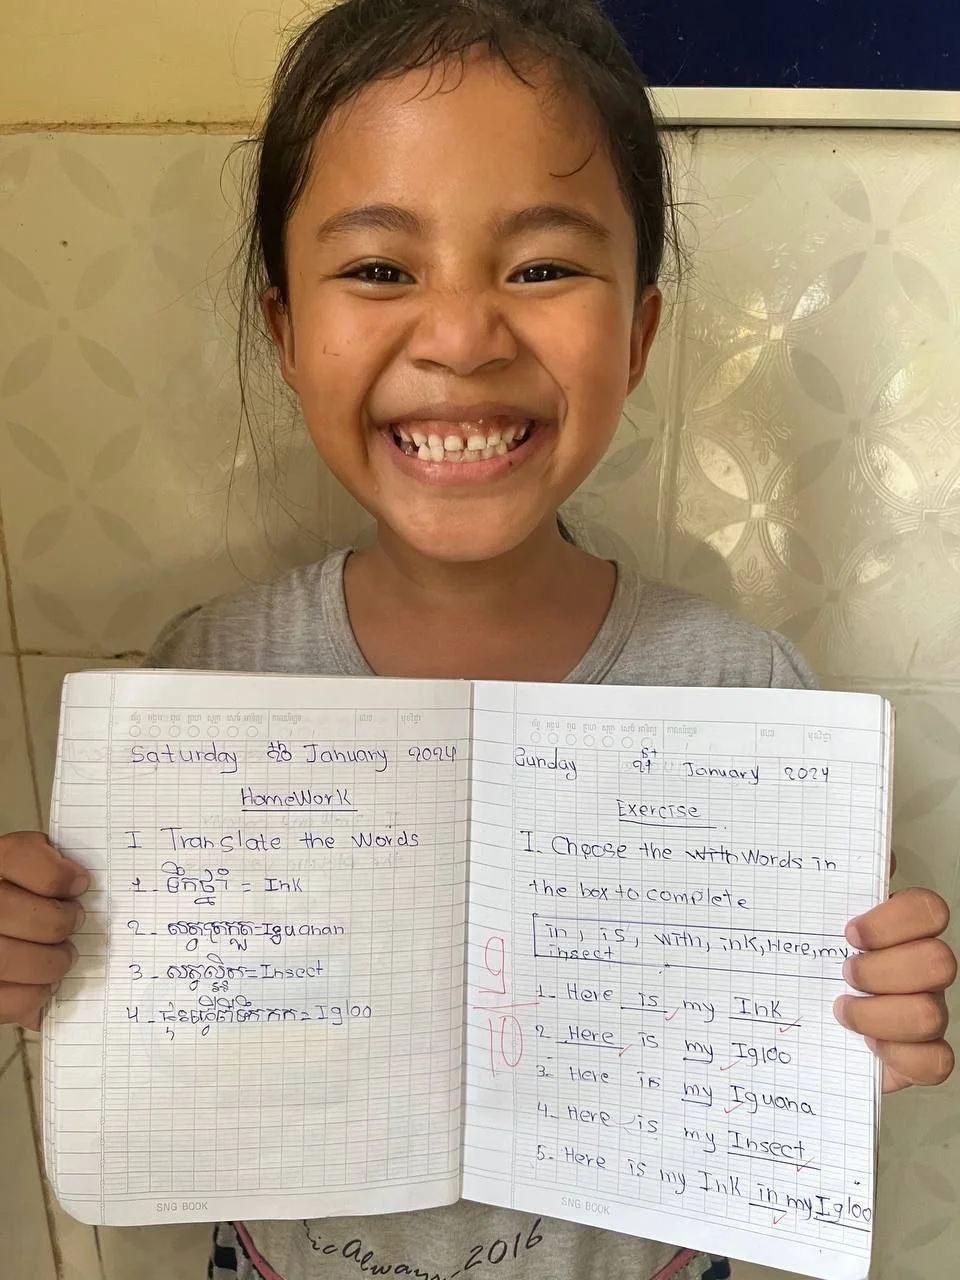 Saturday 20 January 2024
HomeWork
I Translate the Words
1_ ទឹកថ្នាំ = Ink
2_ សត្វត្រកួត=Iguanan
3_ សត្វល្អិត=Insect
4_ ផ្ទះធ្វើពីទឹកកក=Igloo
SNG BOOK
Sunday 21 st January 2024
Exercise
I_ Choose the with Words in
the box to complete
in, is, with, ink, Here, my
insect
9
10
1_ Here is my Ink
2 Here is my Igloo
3_ Here is my Iguana
4_ Here is my Insect
5_ Here is my Ink in my Igloo
SNG BOOK
2016